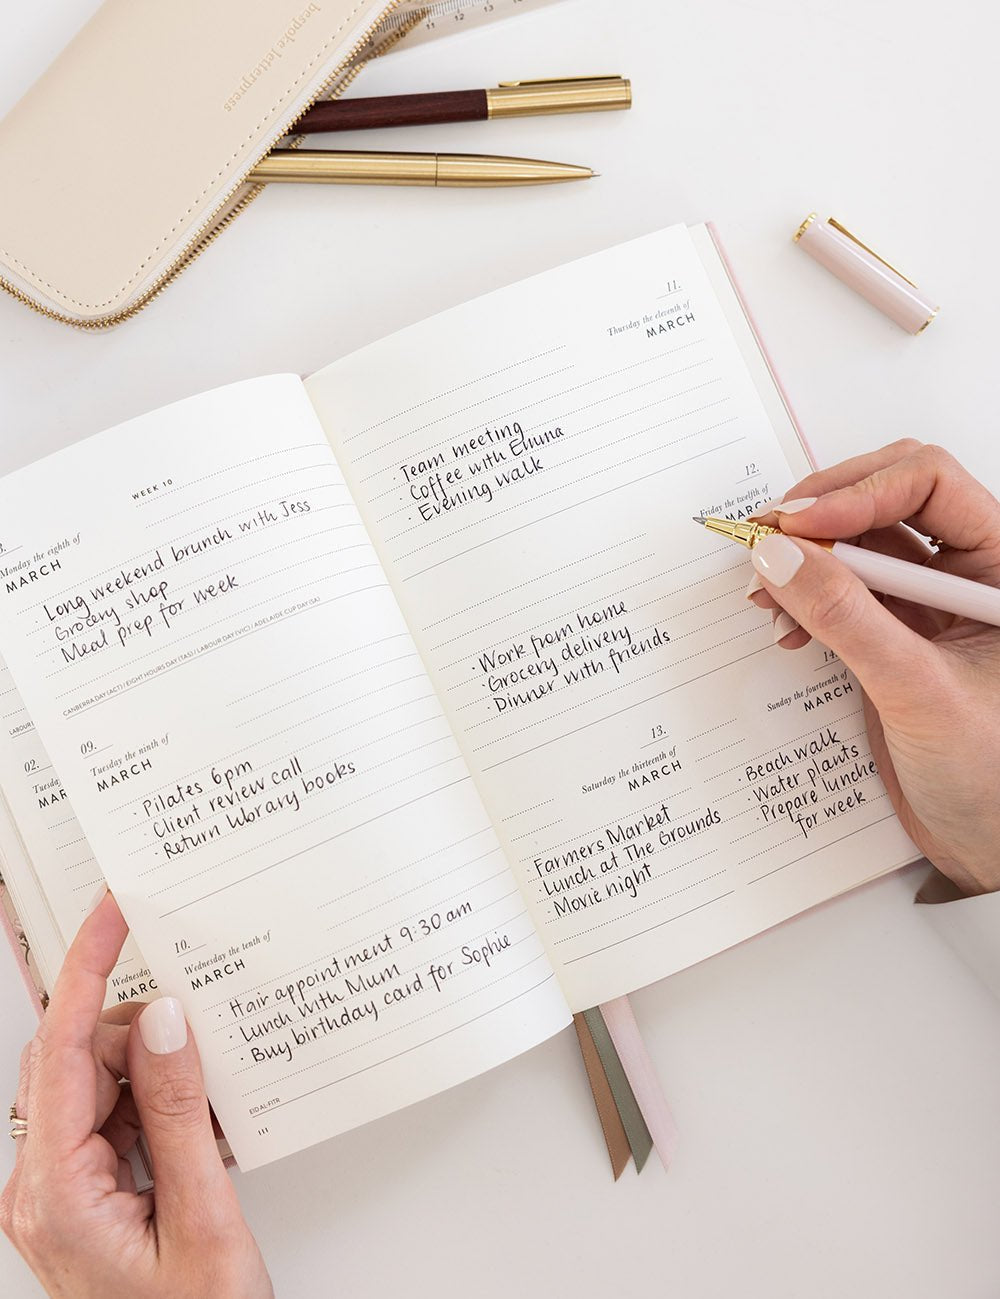 bespoke letterpress
11 12 13
WEEK 10
Monday the eighth of
MARCH
Long weekend brunch with Jess
Grocery shop
Meal prep for week
CANBERRA DAY (ACT) / EIGHT HOURS DAY (TAS) / LABOUR DAY (VIC) / ADELAIDE CUP DAY (SA)
09.
Tuesday the ninth of
MARCH
· Pilates 6pm
· Client review call
· Return library books
10.
Wednesday the tenth of
MARCH
· Hair appointment 9:30 am
· Lunch with Mum
· Buy birthday card for Sophie
EID AL-FITR
111
11.
Thursday the eleventh of
MARCH
· Team meeting
· Coffee with Emma
· Evening walk
12.
Friday the twelfth of
MARCH
· Work from home
· Grocery delivery
· Dinner with friends
13.
Saturday the thirteenth of
MARCH
· Farmers Market
· Lunch at The Grounds
· Movie night
14.
Sunday the fourteenth of
MARCH
· Beach walk
· Water plants
· Prepare lunches
for week
LABOUR
02.
Tuesd
MAR
Wednesd
MARC